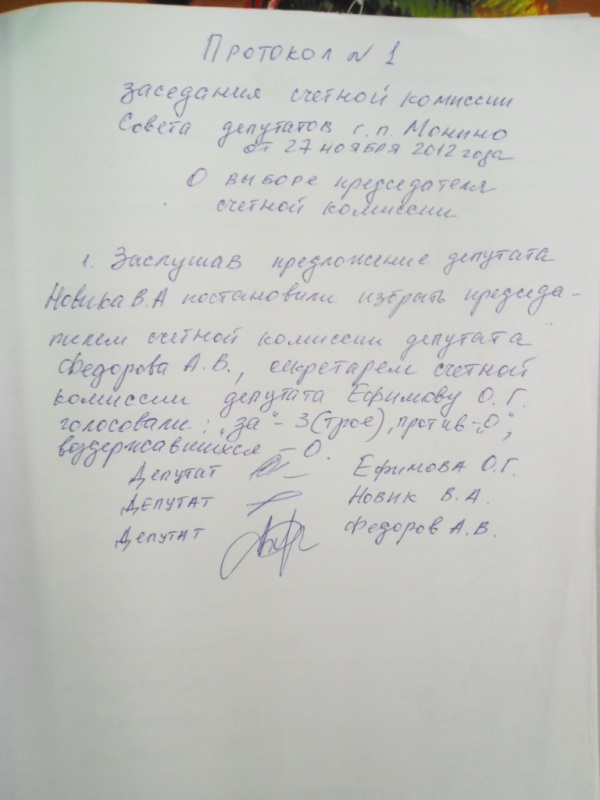 Протокол N 1
заседания счетной комиссии
Совета депутатов г.п. Монино
от 27 ноября 2012 года
О выборе председателя
счетной комиссии
1. Заслушав предложение депутата
Новика В.А постановили избрать председа-
телем счетной комиссии депутата
Федорова А.В., секретарем счетной
комиссии депутата Ефимову О.Г.
голосовали: „за" - 3 (трое), против - „0",
воздержавшихся - 0.
Депутат Ефимова О.Г.
Депутат Новик В.А.
Депутат Федоров А.В.